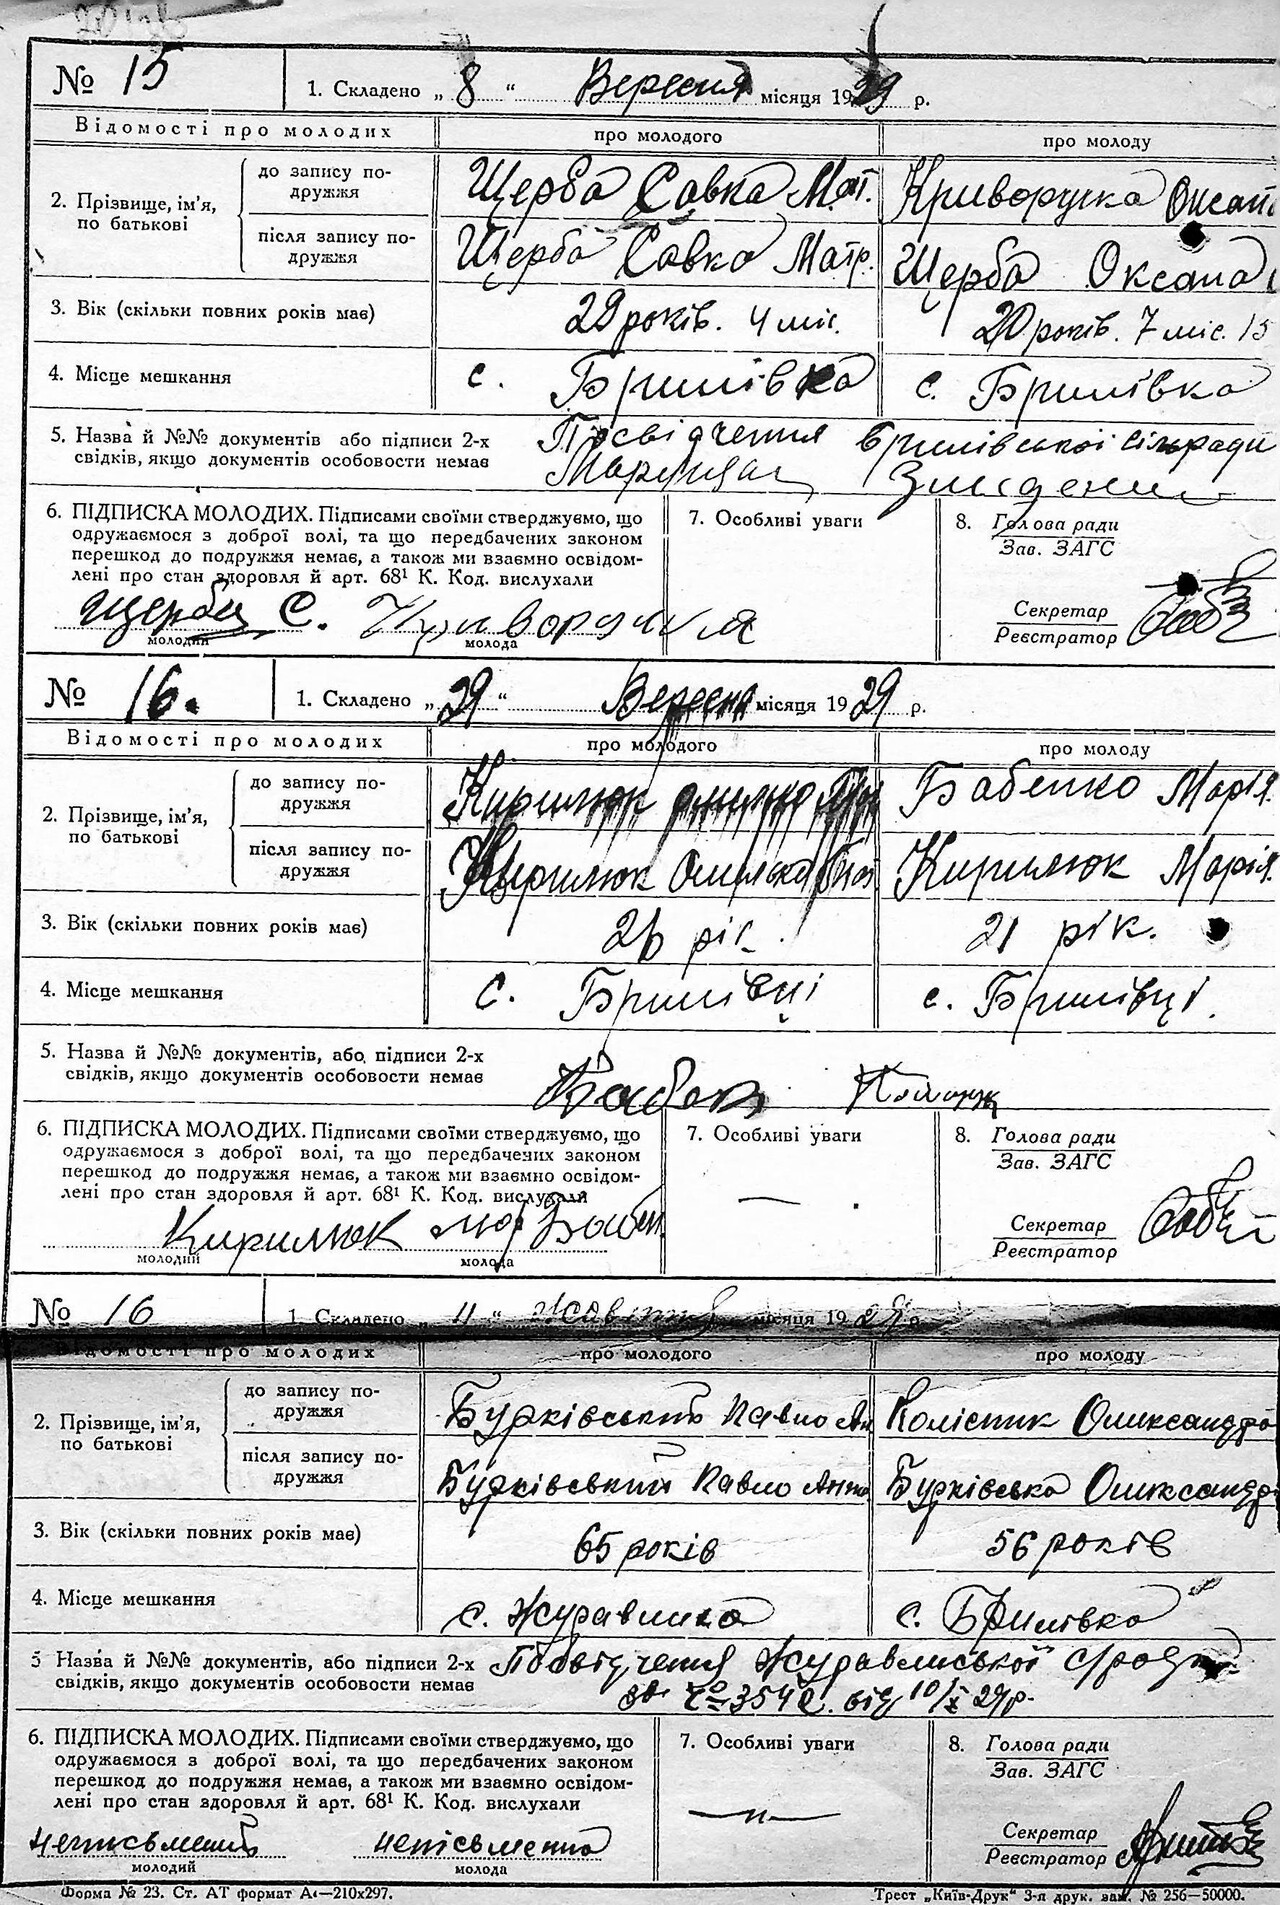 № 15 1. Складено „ 8 “ Вересня місяця 1929 р.
Відомості про молодих про молодого про молоду
2. Прізвище, ім'я, по батькові
до запису подружжя Щерба Савка Мат. Криворучка Оксан
після запису подружжя Щерба Савка Матр. Щерба Оксана
3. Вік (скільки повних років має) 29 років. 4 міс. 20 років. 7 міс. 15
4. Місце мешкання с. Брилівка с. Брилівка
5. Назва й №№ документів або підписи 2-х Посвідчення Брилівської сільради
свідків, якщо документів особовости немає
6. ПІДПИСКА МОЛОДИХ. Підписами своїми стверджуємо, що
одружаємося з доброї волі, та що передбачених законом
перешкод до подружжя немає, а також ми взаємно освідом-
лені про стан здоровля й арт. 68¹ К. Код. вислухали
Щерба С. Криворучка
молодий молода
7. Особливі уваги
8. Голова ради
Зав. ЗАГС
Секретар
Реєстратор
№ 16. 1. Складено „ 29 “ Вересня місяця 1929 р.
Відомості про молодих про молодого про молоду
2. Прізвище, ім'я, по батькові
до запису подружжя Кирилюк Бабенко Марія
після запису подружжя Кирилюк Омелько Кирилюк Марія
3. Вік (скільки повних років має) 26 рік. 21 рік.
4. Місце мешкання с. Брилівці с. Брилівці.
5. Назва й №№ документів, або підписи 2-х
свідків, якщо документів особовости немає
6. ПІДПИСКА МОЛОДИХ. Підписами своїми стверджуємо, що
одружаємося з доброї волі, та що передбачених законом
перешкод до подружжя немає, а також ми взаємно освідом-
лені про стан здоровля й арт. 68¹ К. Код. вислухали
Кирилюк мар Бабен
молодий молода
7. Особливі уваги
—
8. Голова ради
Зав. ЗАГС
Секретар
Реєстратор
№ 16 1. Складено „ 11 “ Жовтня місяця 1929 р.
Відомості про молодих про молодого про молоду
2. Прізвище, ім'я, по батькові
до запису подружжя Бурківський Павло Ан Колісник Олександра
після запису подружжя Бурківський Павло Анто Бурківська Олександр
3. Вік (скільки повних років має) 65 років 56 років
4. Місце мешкання с. Журавлика с. Брилівка
5 Назва й №№ документів, або підписи 2-х Посвідчення Журавлиської с/ради
свідків, якщо документів особовости немає за № 3542. від 10/X 29р.
6. ПІДПИСКА МОЛОДИХ. Підписами своїми стверджуємо, що
одружаємося з доброї волі, та що передбачених законом
перешкод до подружжя немає, а також ми взаємно освідом-
лені про стан здоровля й арт. 68¹ К. Код. вислухали
неписьменний неписьменна
молодий молода
7. Особливі уваги
—„—
8. Голова ради
Зав. ЗАГС
Секретар
Реєстратор
Форма № 23. Ст. АТ формат А₄—210x297. Трест „Київ-Друк“ 3-я друк. зам. № 256—50000.